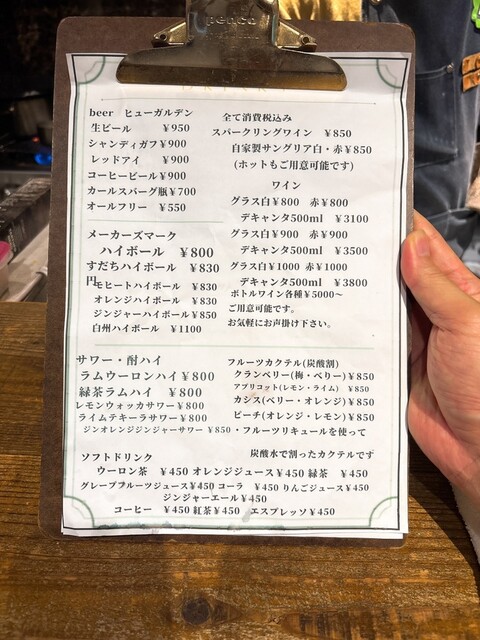 penco
beer ヒューガルデン
生ビール ¥950
シャンディガフ¥900
レッドアイ ¥900
コーヒービール¥900
カールスバーグ瓶¥700
オールフリー ¥550
メーカーズマーク
ハイボール ¥800
すだちハイボール ¥830
円
モヒートハイボール ¥830
オレンジハイボール ¥830
ジンジャーハイボール¥850
白州ハイボール ¥1100
サワー・酎ハイ
ラムウーロンハイ¥800
緑茶ラムハイ ¥800
レモンウォッカサワー¥800
ライムテキーラサワー¥800
ジンオレンジジンジャーサワー ¥850
全て消費税込み
スパークリングワイン ¥850
自家製サングリア白・赤¥850
(ホットもご用意可能です)
ワイン
グラス白¥800 赤¥800
デキャンタ500ml ¥3100
グラス白¥900 赤¥900
デキャンタ500ml ¥3500
グラス白¥1000 赤¥1000
デキャンタ500ml ¥3800
ボトルワイン各種¥5000〜
ご用意可能です。
お気軽にお声掛け下さい。
フルーツカクテル(炭酸割)
クランベリー(梅・ベリー)¥850
アプリコット(レモン・ライム) ¥850
カシス(ベリー・オレンジ)¥850
ピーチ(オレンジ・レモン)¥850
・フルーツリキュールを使って
炭酸水で割ったカクテルです
ソフトドリンク
ウーロン茶 ¥450 オレンジジュース¥450 緑茶 ¥450
グレープフルーツジュース¥450 コーラ ¥450 りんごジュース¥450
ジンジャーエール¥450
コーヒー ¥450 紅茶¥450 エスプレッソ¥450